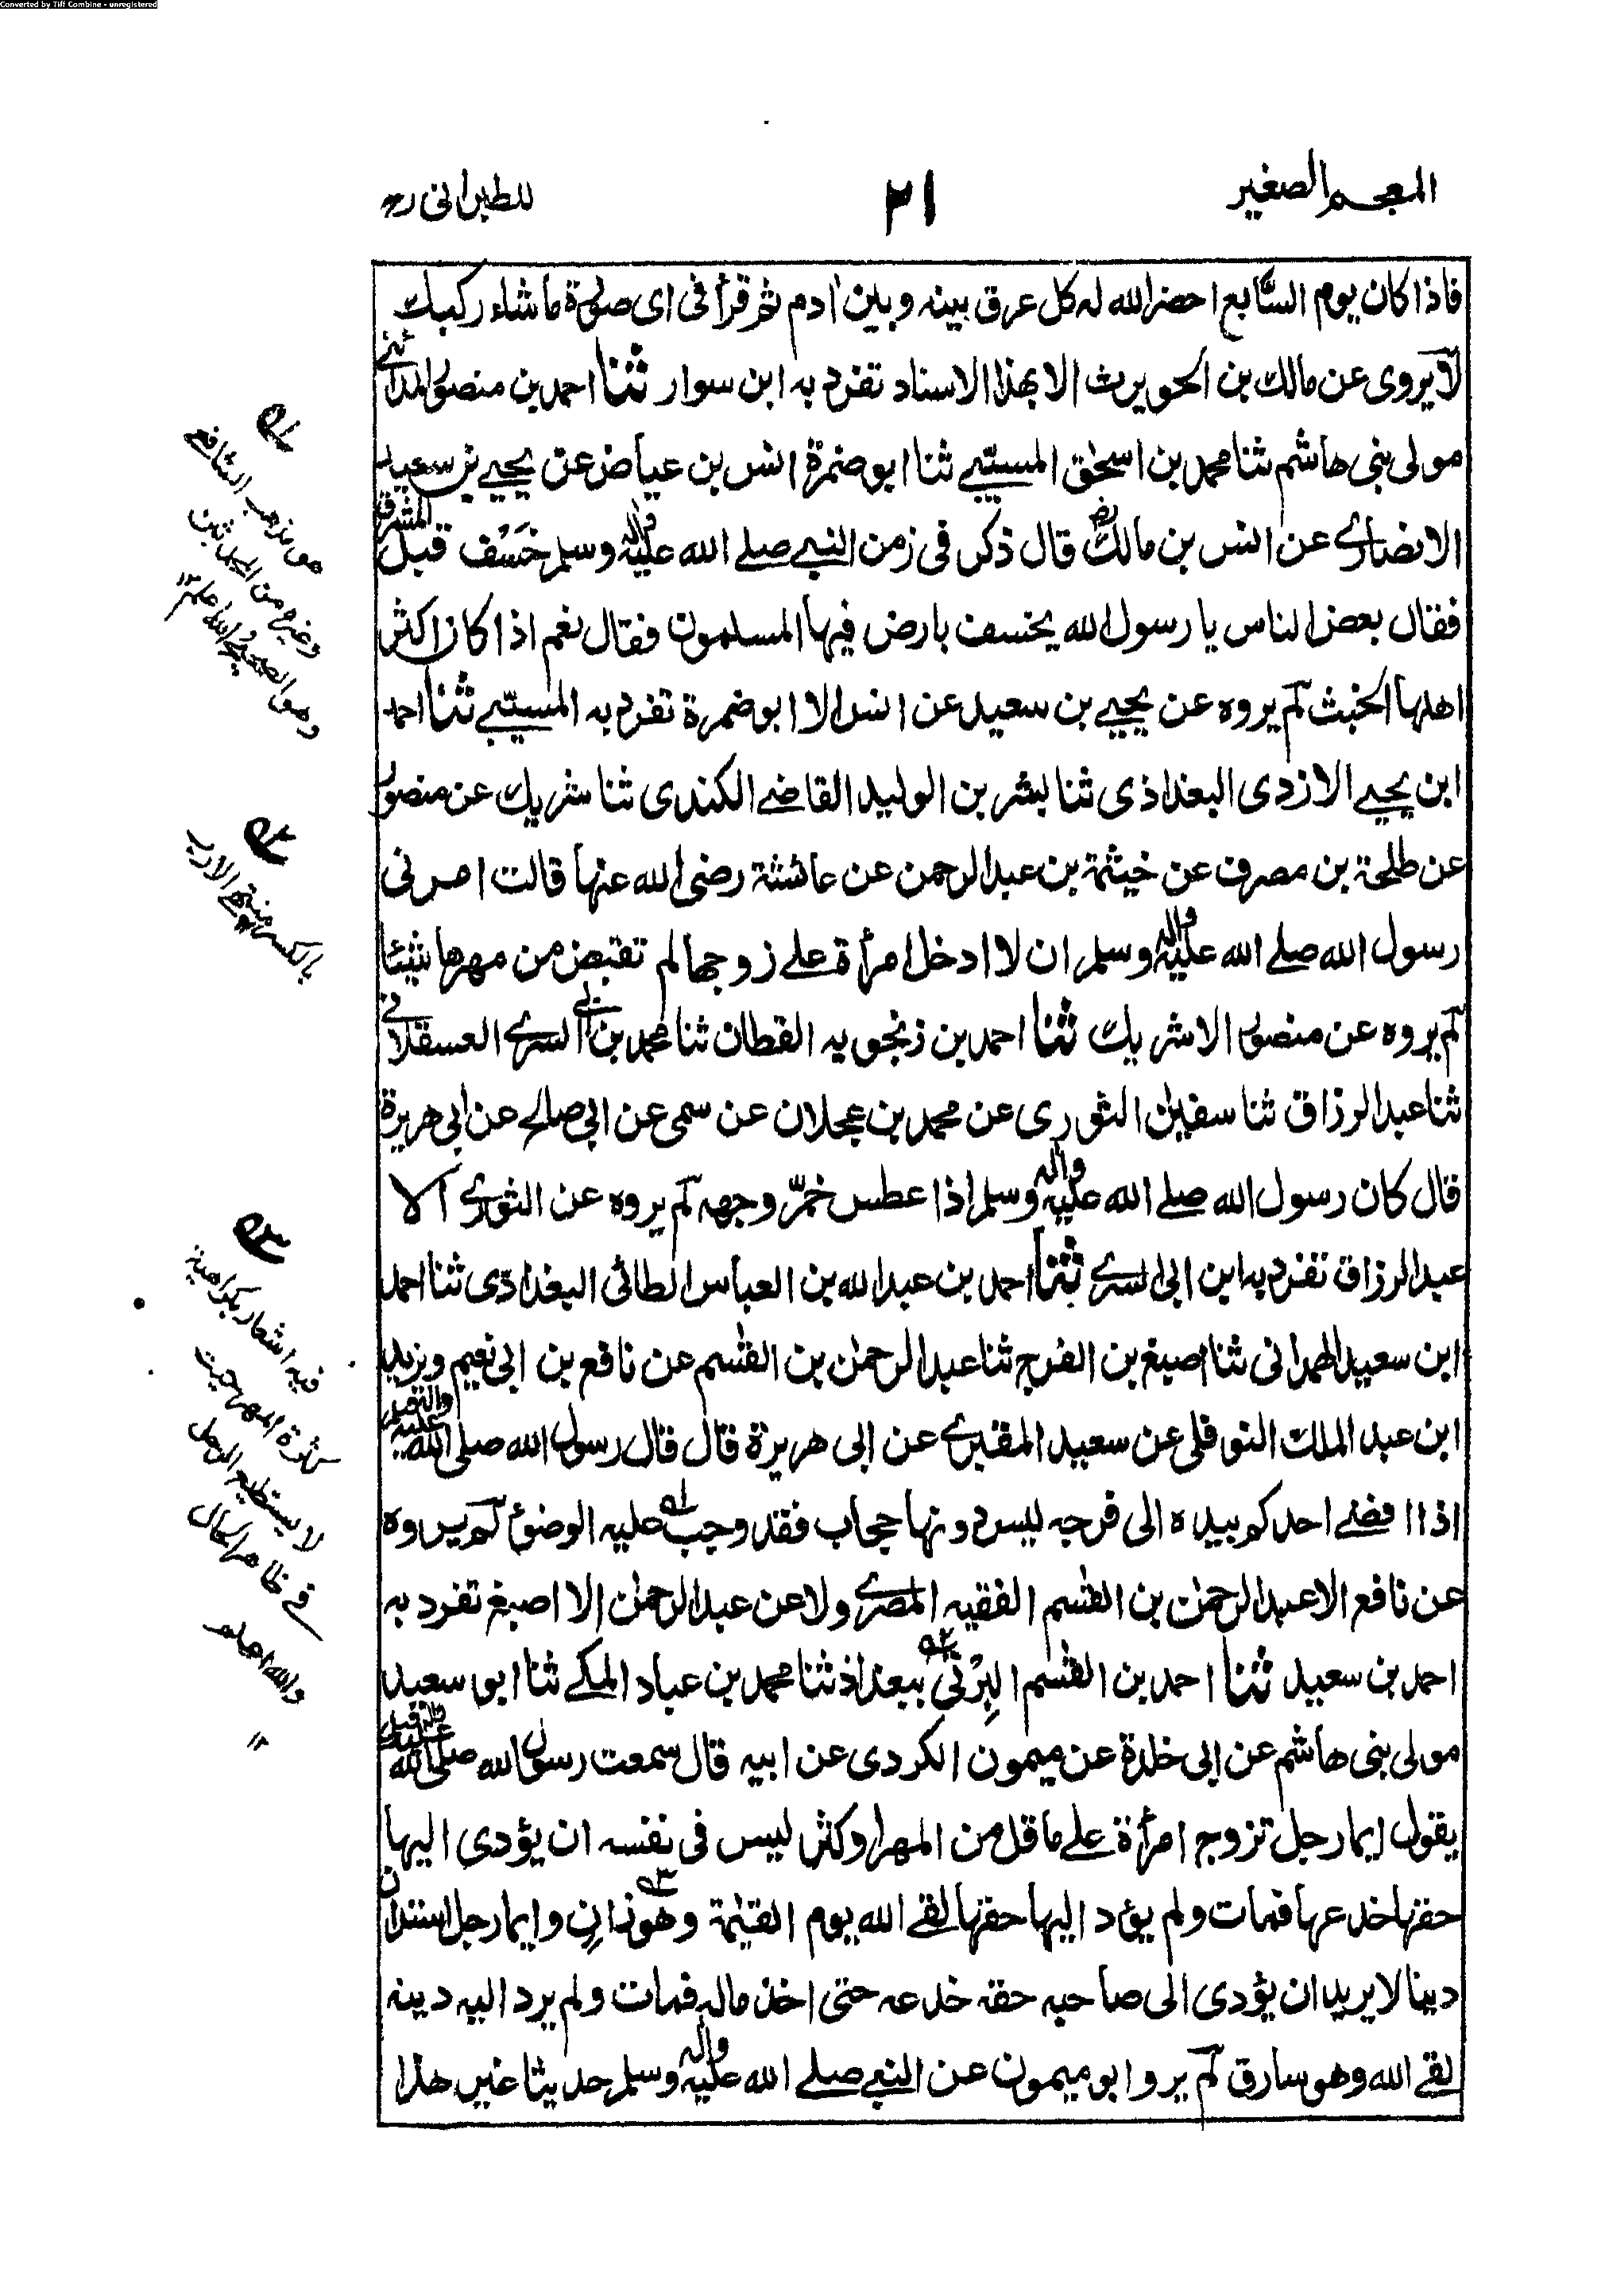 Converted by Tiff Combine - unregistered
المعجم الصغير
٢١
للطبرانى رح
فاذا كان يوم السابع احضر الله له كل عرق بينه وبين ادم ثم قرأ فى اى صورة ما شاء ركبك
لا يروى عن مالك بن الحويرث الا بهذا الاسناد تفرد به ابن سوار ثنا احمد بن منصور المدائنى
مولى بنى هاشم ثنا محمد بن اسحق المسيبى ثنا ابو ضمرة انس بن عياض عن يحيى بن سعيد
الانصارى عن انس بن مالك رض قال ذكر فى زمن النبى صلى الله عليه واله وسلم خسف قبل المشرق
فقال بعض الناس يا رسول الله يخسف بارض فيها المسلمون فقال نعم اذا كان اكثر
اهلها الخبث لم يروه عن يحيى بن سعيد عن انس الا ابو ضمرة تفرد به المسيبى ثنا احمد
ابن يحيى الازدى البغداذى ثنا بشر بن الوليد القاضى الكندى ثنا شريك عن منصور
عن طلحة بن مصرف عن خيثمة بن عبد الرحمن عن عائشة رضى الله عنها قالت امرنى
رسول الله صلى الله عليه واله وسلم ان لا ادخل امرأة على زوجها لم تقبض من مهرها شيئا
لم يروه عن منصور الا شريك ثنا احمد بن زنجويه القطان ثنا محمد بن ابى السرى العسقلانى
ثنا عبد الرزاق ثنا سفين الثورى عن محمد بن عجلان عن سمى عن ابى صالح عن ابى هريرة
قال كان رسول الله صلى الله عليه واله وسلم اذا عطس خمّر وجهه لم يروه عن الثورى الا
عبد الرزاق تفرد به ابن ابى السرى ثنا احمد بن عبد الله بن العباس الطائى البغداذى ثنا احمد
ابن سعيد الهمدانى ثنا اصبغ بن الفرج ثنا عبد الرحمن بن القسم عن نافع بن ابى نعيم ويزيد
ابن عبد الملك النوفلى عن سعيد المقبرى عن ابى هريرة قال قال رسول الله صلى الله عليه واله وسلم
اذا افضى احدكم بيده الى فرجه ليس دونها حجاب فقد وجب عليه الوضوء لم يروه
عن نافع الا عبد الرحمن بن القسم الفقيه المصرى ولا عن عبد الرحمن الا اصبغ تفرد به
احمد بن سعيد ثنا احمد بن القسم البِرْتى ببغداذ ثنا محمد بن عباد المكى ثنا ابو سعيد
مولى بنى هاشم عن ابى خلدة عن ميمون الكردى عن ابيه قال سمعت رسول الله صلى الله عليه واله وسلم
يقول ايما رجل تزوج امرأة على ما قل من المهر او كثر ليس فى نفسه ان يؤدى اليها
حقها خدعها فمات ولم يؤد اليها حقها لقى الله يوم القيمة وهو زانٍ وايما رجل استدان
دينا لا يريد ان يؤدى الى صاحبه حقه خدعه حتى اخذ ماله فمات ولم يرد اليه دينه
لقى الله وهو سارق لم يرو ابو ميمون عن النبى صلى الله عليه واله وسلم حديثا غير هذا
١
هو مذهب الشافعى
وغيره من المحدثين
وهو الصحيح والله اعلم ١٢
٢
بالكسر منتهى الارب
٣
فيه اشعار بكراهية
كثرة المهر حيث
لا يستطيع الرجل
فى ظاهر الحال
والله اعلم
١٢